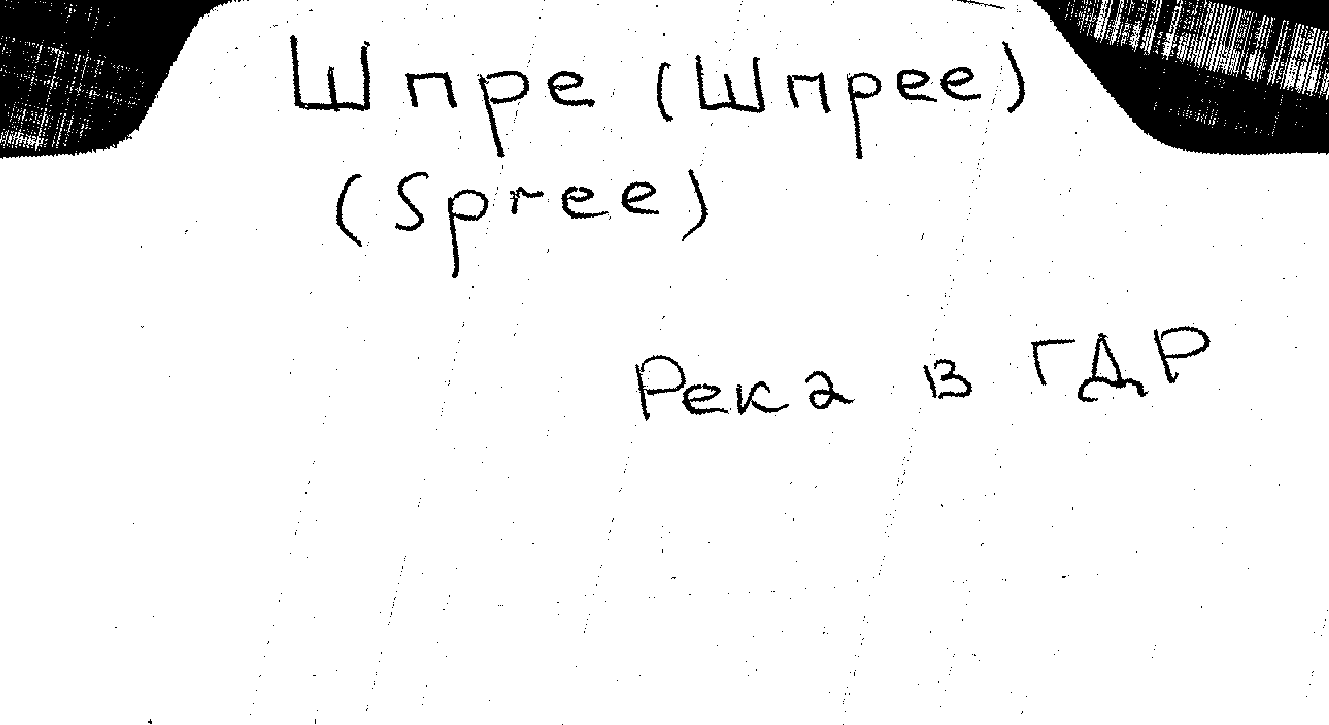 Шпре (Шпрее)
(Spree)
Река в ГДР